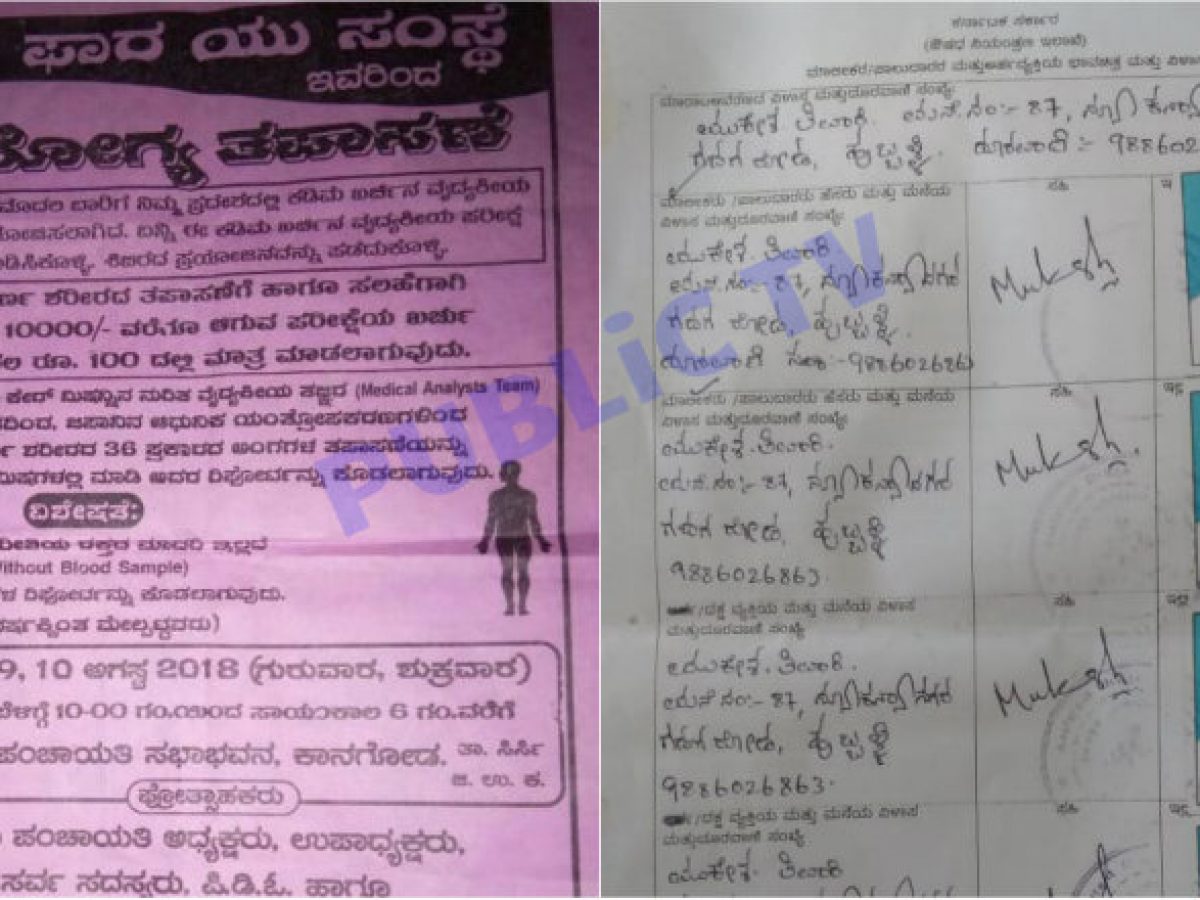 ಫಾರ ಯು ಸಂಸ್ಥೆ
ಇವರಿಂದ
ರೋಗ್ಯ ತಪಾಸಣೆ
ಮೊದಲ ಬಾರಿಗೆ ನಿಮ್ಮ ಪ್ರದೇಶದಲ್ಲಿ ಕಡಿಮೆ ಖರ್ಚಿನ ವೈದ್ಯಕೀಯ
ಯೋಜಿಸಲಾಗಿದೆ. ಬನ್ನಿ ಈ ಕಡಿಮೆ ಖರ್ಚಿನ ವೈದ್ಯಕೀಯ ಪರೀಕ್ಷೆ
ಡಿಸಿಕೊಳ್ಳಿ, ಶಿಬಿರದ ಪ್ರಯೋಜನವನ್ನು ಪಡೆದುಕೊಳ್ಳಿ.
ರ್ಣ ಶರೀರದ ತಪಾಸಣೆಗೆ ಹಾಗೂ ಸಲಹೆಗಾಗಿ
10000/- ವರೆಗೂ ಆಗುವ ಪರೀಕ್ಷೆಯ ಖರ್ಚು
ಲ ರೂ. 100 ದಲ್ಲಿ ಮಾತ್ರ ಮಾಡಲಾಗುವುದು.
ಕೇರ್ ಮಿಷ್ಯನ ನುರಿತ ವೈದ್ಯಕೀಯ ತಜ್ಞರ (Medical Analysts Team)
ರಿಂದ, ಜಪಾನಿನ ಆಧುನಿಕ ಯಂತ್ರೋಪಕರಣಗಳಿಂದ
ಶರೀರದ 36 ಪ್ರಕಾರದ ಅಂಗಗಳ ತಪಾಸಣೆಯನ್ನು
ಮಿಷಗಳಲ್ಲಿ ಮಾಡಿ ಅದರ ರಿಪೋರ್ಟನ್ನು ಕೊಡಲಾಗುವುದು.
ವಿಶೇಷತೆ:
ರೀತಿಯ ರಕ್ತದ ಮಾದರಿ ಇಲ್ಲದೆ
ithout Blood Sample)
ರಿಪೋರ್ಟನ್ನು ಕೊಡಲಾಗುವುದು.
ವರ್ಷಕ್ಕಿಂತ ಮೇಲ್ಪಟ್ಟವರು)
9, 10 ಅಗಸ್ಟ 2018 (ಗುರುವಾರ, ಶುಕ್ರವಾರ)
ಬೆಳಿಗ್ಗೆ 10-00 ಗಂ.ಯಿಂದ ಸಾಯಂಕಾಲ 6 ಗಂ.ವರೆಗೆ
ಪಂಚಾಯತಿ ಸಭಾಭವನ, ಕಾನಗೋಡ. ತಾ. ಸಿರ್ಸಿ
ಜಿ. ಉ. ಕ.
ಪ್ರೋತ್ಸಾಹಕರು
ಪಂಚಾಯತಿ ಅಧ್ಯಕ್ಷರು, ಉಪಾಧ್ಯಕ್ಷರು,
ಸರ್ವ ಸದಸ್ಯರು, ಪಿ.ಡಿ.ಓ. ಹಾಗೂ
PUBLiC TV
ಕರ್ನಾಟಕ ಸರ್ಕಾರ
(ಔಷಧ ನಿಯಂತ್ರಣ ಇಲಾಖೆ)
ಮಾಲೀಕರ/ಪಾಲುದಾರರ ಮತ್ತುಅರ್ಹವ್ಯಕ್ತಿಯ ಭಾವಚಿತ್ರ ಮತ್ತು ವಿಳಾ
ವಿಳಾಸ ಮತ್ತುದೂರವಾಣಿ ಸಂಖ್ಯೆ:
ಮುಕೇಶ ತಿವಾರಿ. ಮನೆ.ಸಂ:- 87,
ಗದಗ ರೋಡ, ಹುಬ್ಬಳ್ಳಿ. ದೂರವಾಣಿ :- 9886026
ಮಾಲೀಕರು /ಪಾಲುದಾರರು ಹೆಸರು ಮತ್ತು ಮನೆಯ ಸಹಿ
ವಿಳಾಸ ಮತ್ತುದೂರವಾಣಿ ಸಂಖ್ಯೆ:
ಮುಕೇಶ. ತಿವಾರಿ
ಮನೆ.ಸಂ:- 87,
ಗದಗ ರೋಡ, ಹುಬ್ಬಳ್ಳಿ.
ದೂರವಾಣಿ ಸಂಖ್ಯೆ:-9886026863
Mukesh
ಮಾಲೀಕರು /ಪಾಲುದಾರರು ಹೆಸರು ಮತ್ತು ಮನೆಯ ಸಹಿ ಇಲ್ಲಿ
ವಿಳಾಸ ಮತ್ತುದೂರವಾಣಿ ಸಂಖ್ಯೆ:
ಮುಕೇಶ. ತಿವಾರಿ.
ಮನೆ.ಸಂ:- 87,
ಗದಗ ರೋಡ, ಹುಬ್ಬಳ್ಳಿ
9886026863.
Mukesh.
/ದಕ್ಷ ವ್ಯಕ್ತಿಯ ಮತ್ತು ಮನೆಯ ವಿಳಾಸ ಸಹಿ ಇಲ್ಲಿ
ಮತ್ತುದೂರವಾಣಿ ಸಂಖ್ಯೆ
ಮುಕೇಶ. ತಿವಾರಿ.
ಮನೆ.ಸಂ:- 87,
ಗದಗ ರೋಡ, ಹುಬ್ಬಳ್ಳಿ
9886026863.
Mukesh
/ದಕ್ಷ ವ್ಯಕ್ತಿಯ ಮತ್ತು ಮನೆಯ ವಿಳಾಸ ಸಹಿ ಇಲ್ಲಿ
ಮತ್ತುದೂರವಾಣಿ ಸಂಖ್ಯೆ
ಮುಕೇಶ. ತಿವಾರಿ